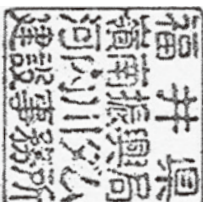 福井県
嶺南振興局
河内川ダム
建設事務所